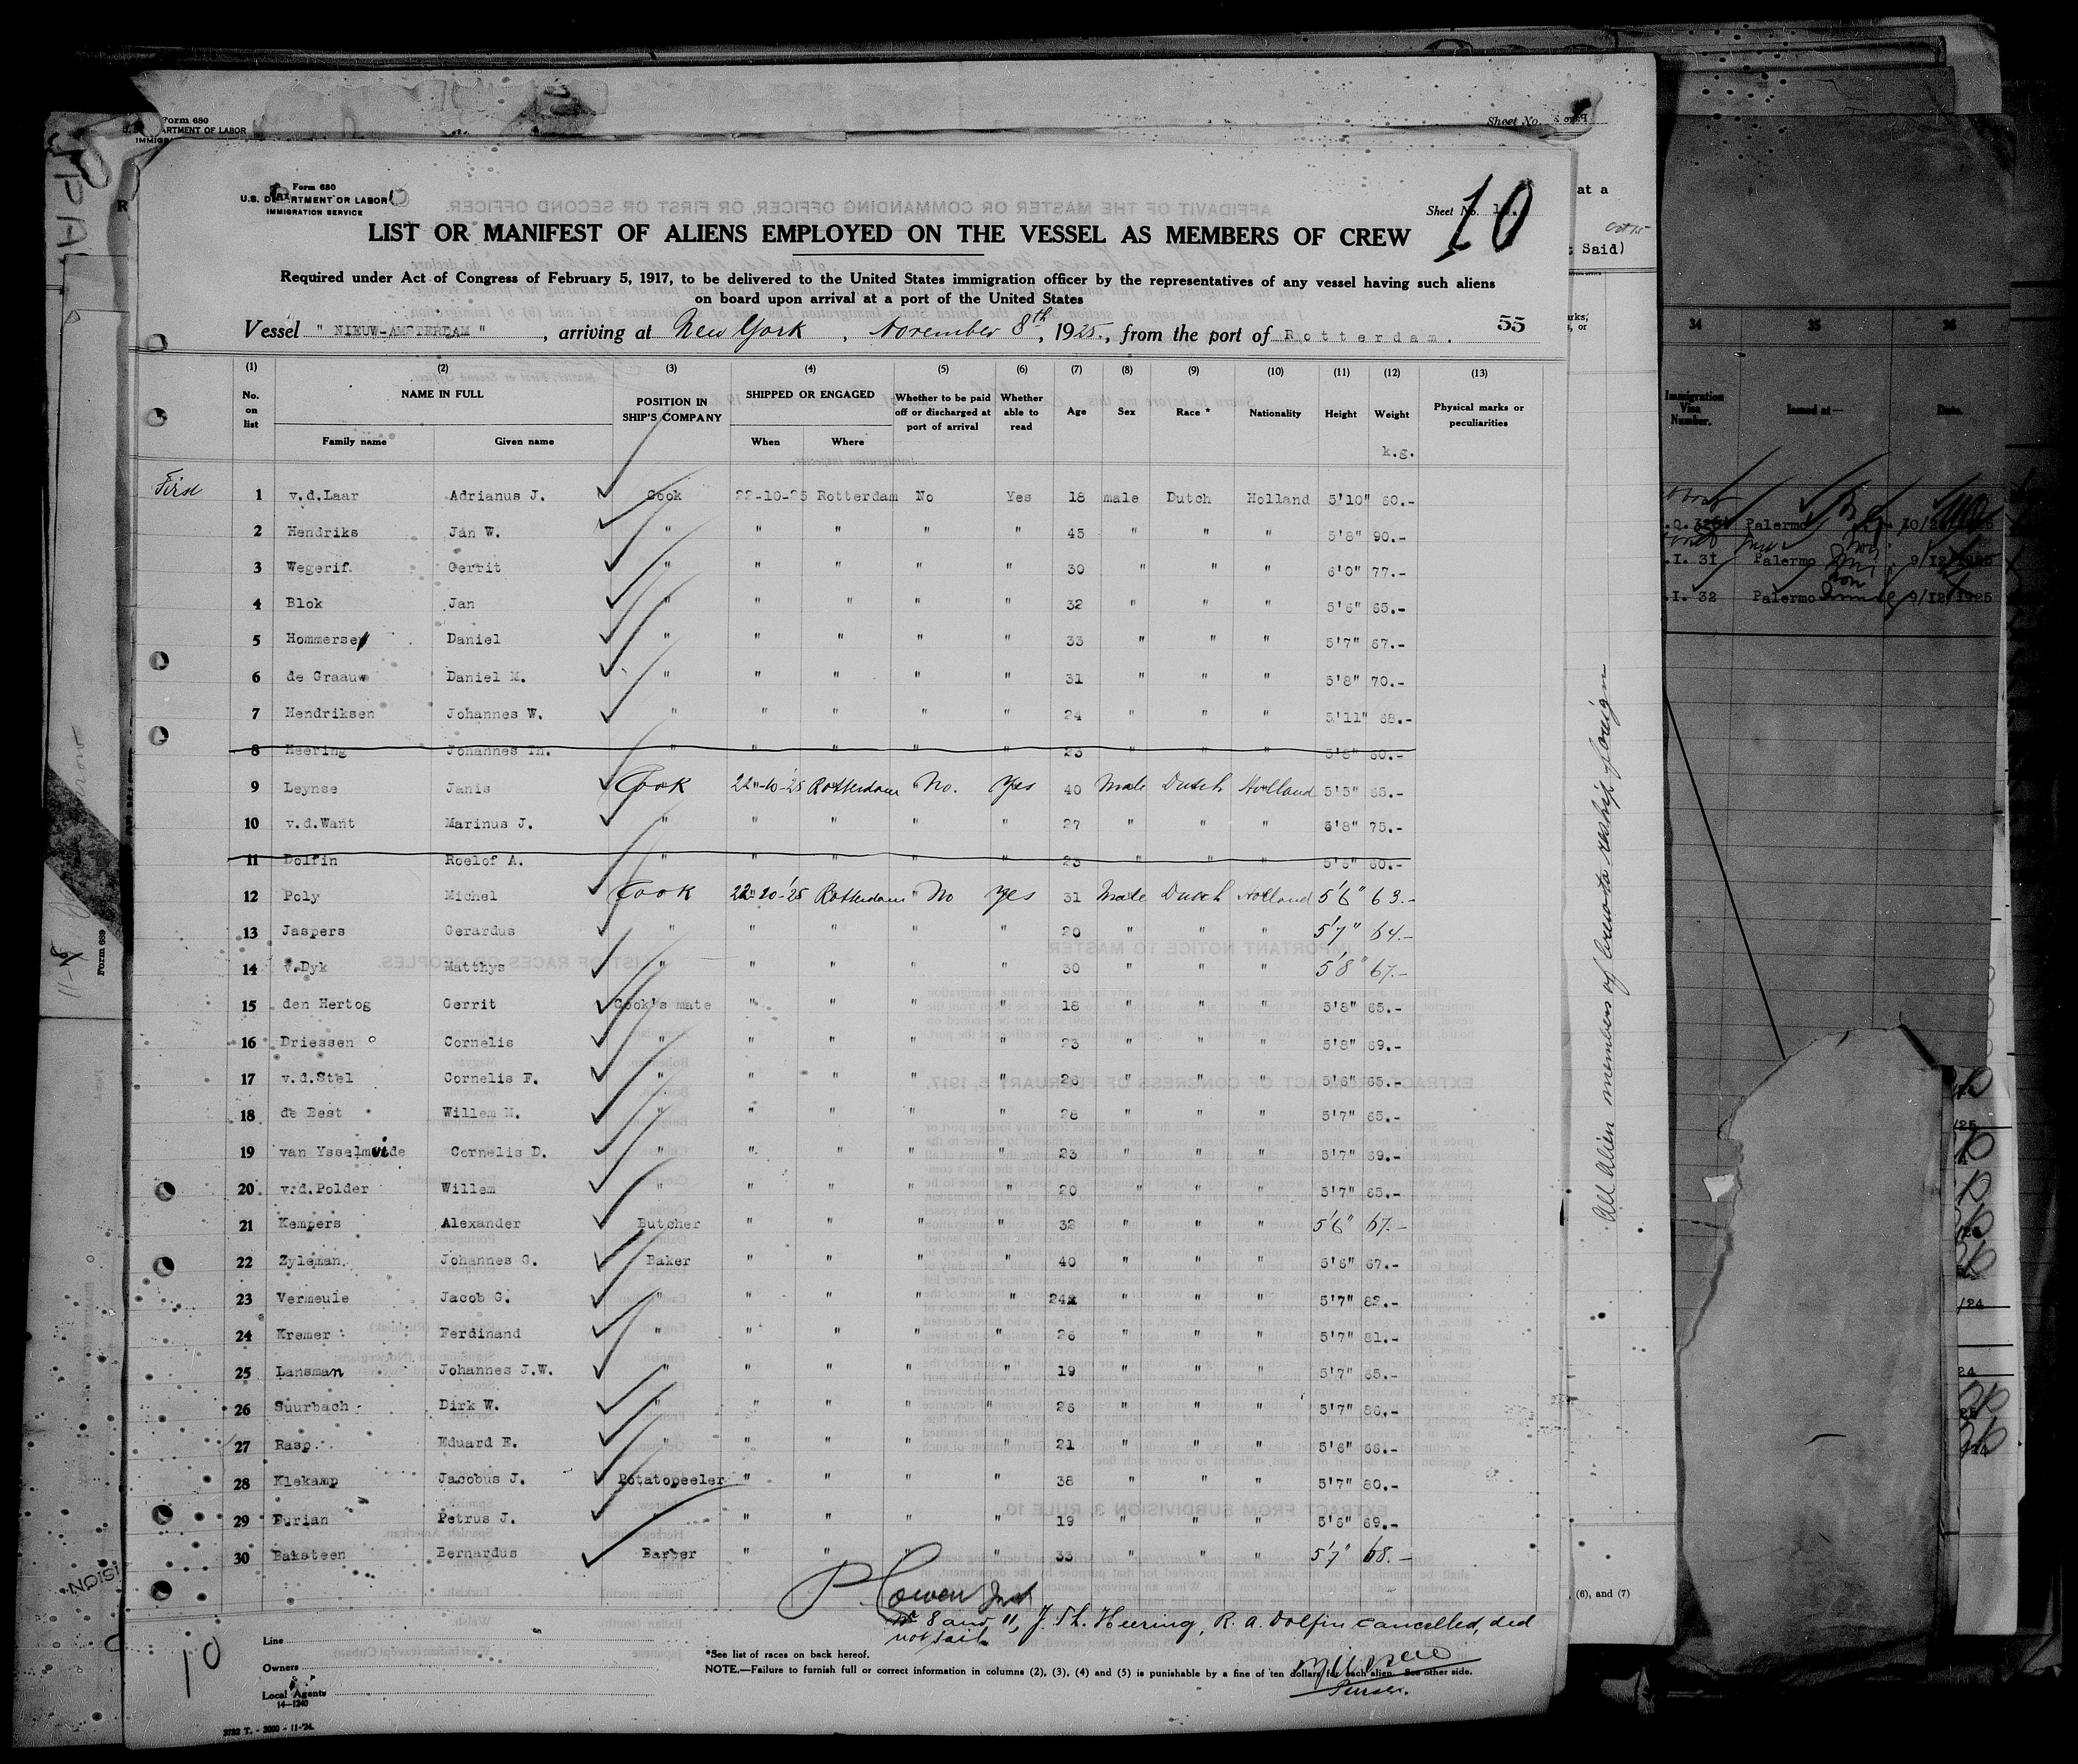 Form 680
U.S. DEPARTMENT OF LABOR
IMMIGRATION SERVICE
Sheet No.
10
LIST OR MANIFEST OF ALIENS EMPLOYED ON THE VESSEL AS MEMBERS OF CREW
Required under Act of Congress of February 5, 1917, to be delivered to the United States immigration officer by the representatives of any vessel having such aliens
on board upon arrival at a port of the United States
Vessel " NIEUW-AMSTERDAM ", arriving at New York, November 8th, 1925., from the port of Rotterdam. 55
(1) (2) (3) (4) (5) (6) (7) (8) (9) (10) (11) (12) (13)
No. on list NAME IN FULL Family name Given name POSITION IN SHIP'S COMPANY SHIPPED OR ENGAGED When Where Whether to be paid off or discharged at port of arrival Whether able to read Age Sex Race * Nationality Height Weight k.g. Physical marks or peculiarities
First 1 v.d.Laar Adrianus J. Cook 22-10-25 Rotterdam No Yes 18 male Dutch Holland 5'10" 60.-
2 Hendriks Jan W. " " " " " 45 " " " 5'8" 90.-
3 Wegerif Gerrit " " " " " 30 " " " 6'0" 77.-
4 Blok Jan " " " " " 32 " " " 5'6" 65.-
5 Hommersen Daniel " " " " " 33 " " " 5'7" 67.-
6 de Graauw Daniel M. " " " " " 31 " " " 5'8" 70.-
7 Hendriksen Johannes W. " " " " " 24 " " " 5'11" 68.-
8 Heering Johannes Th. " " " " " 23 " " " 5'8" 60.-
9 Leynse Janis Cook 22-10-'25 Rotterdam No. Yes 40 Male Dutch Holland 5'5" 65.-
10 v.d.Want Marinus J. " " " " " 27 " " " 5'8" 75.-
11 Dolfin Roelof A. " " " " " 23 " " " 5'5" 60.-
12 Poly Michel Cook 22-10-'25 Rotterdam No Yes 31 Male Dutch Holland 5'6" 63.-
13 Jaspers Gerardus " " " " " 20 " " " 5'7" 64.-
14 v.Dyk Matthys " " " " " 30 " " " 5'8" 67.-
15 den Hertog Gerrit Cook's mate " " " " 18 " " " 5'8" 65.-
16 Driessen Cornelis " " " " " 23 " " " 5'8" 69.-
17 v.d.Stel Cornelis F. " " " " " 26 " " " 5'6" 65.-
18 de Best Willem M. " " " " " 28 " " " 5'7" 65.-
19 van Ysselmuide Cornelis D. " " " " " 23 " " " 5'7" 69.-
20 v.d.Polder Willem " " " " " 20 " " " 5'7" 65.-
21 Kempers Alexander Butcher " " " " 32 " " " 5'6" 67.-
22 Zyleman Johannes G. Baker " " " " 40 " " " 5'6" 67.-
23 Vermeule Jacob G. " " " " " 24 " " " 5'7" 82.-
24 Kremer Ferdinand " " " " " 26 " " " 5'7" 81.-
25 Lansman Johannes J.W. " " " " " 19 " " " 5'7" 65.-
26 Suurbach Dirk W. " " " " " 26 " " " 5'7" 86.-
27 Rasp. Eduard F. " " " " " 21 " " " 5'6" 66.-
28 Klekamp Jacobus J. Potatopeeler " " " " 38 " " " 5'7" 80.-
29 Furian Petrus J. " " " " " 19 " " " 5'6" 69.-
30 Baksteen Bernardus Barber " " " " 33 " " " 5'7" 68.-
P. Cowen
No 8 and 11, J. Th. Heering, R. A. Dolfin cancelled, did
not sail.
Purser.
Line
Owners
Local Agents
14—1240
*See list of races on back hereof.
NOTE.—Failure to furnish full or correct information in columns (2), (3), (4) and (5) is punishable by a fine of ten dollars for each alien. See other side.
10
Form 680
IMMIG
Sheet No.
at a
Said)
All Alien members of crew to reship foreign
(6), and (7)
Form 689
34 35 36
Immigration Visa Number. Issued at— Date.
Palermo
I. 31 Palermo 9/12/1925
I. 32 Palermo 9/12/1925